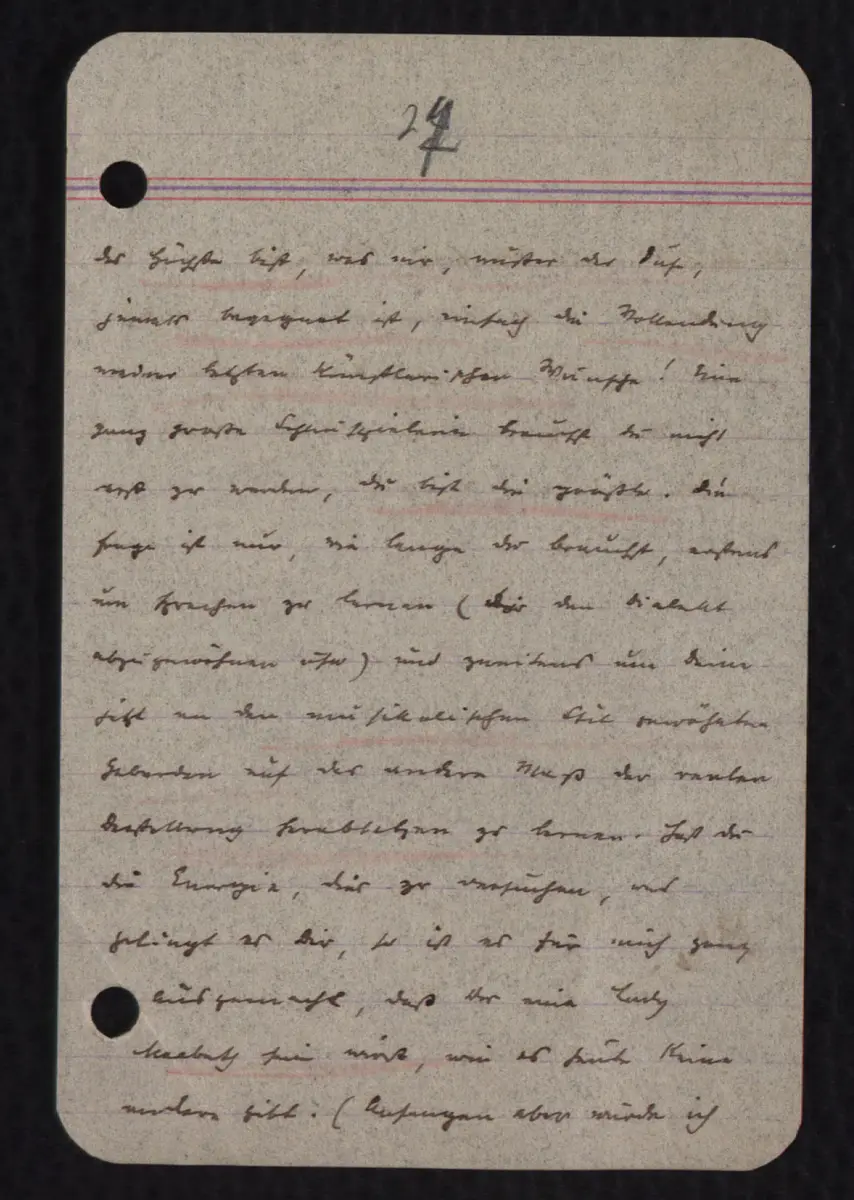 24
das Höchste bist, was mir, außer der Duse,
jemals begegnet ist, einfach die Vollendung
meiner letzten künstlerischen Wünsche! Eine
ganz große Schauspielerin brauchst du nicht
erst zu werden, du bist die größte. Die
Frage ist nur, wie lange du brauchst, erstens
um sprechen zu lernen (dir den Dialekt
abzugewöhnen usw) und zweitens um deine
jetzt an den musikalischen Stil gewöhnten
Geberden auf das andere Maß der realen
Darstellung herabsetzen zu lernen. Hast du
die Energie, dies zu versuchen, und
gelingt es Dir, so ist es für mich ganz
ausgemacht, daß Du eine Lady
Macbeth sein wirst, wie es heute keine
andere gibt. (Anfangen aber würde ich